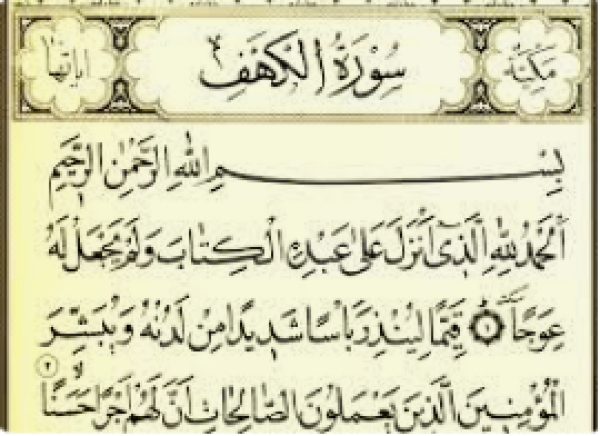 مكية سورة الكهف اياتها
بِسْمِ اللهِ الرَّحْمٰنِ الرَّحِيمِ
اَلْحَمْدُ لِلّٰهِ الَّذٖى اَنْزَلَ عَلٰى عَبْدِهِ الْكِتَابَ وَلَمْ يَجْعَلْ لَهُ
عِوَجًا ١ قَيِّمًا لِيُنْذِرَ بَاْسًا شَدٖيدًا مِنْ لَدُنْهُ وَيُبَشِّرَ
الْمُؤْمِنٖينَ الَّذٖينَ يَعْمَلُونَ الصَّالِحَاتِ اَنَّ لَهُمْ اَجْرًا حَسَنًا ٢